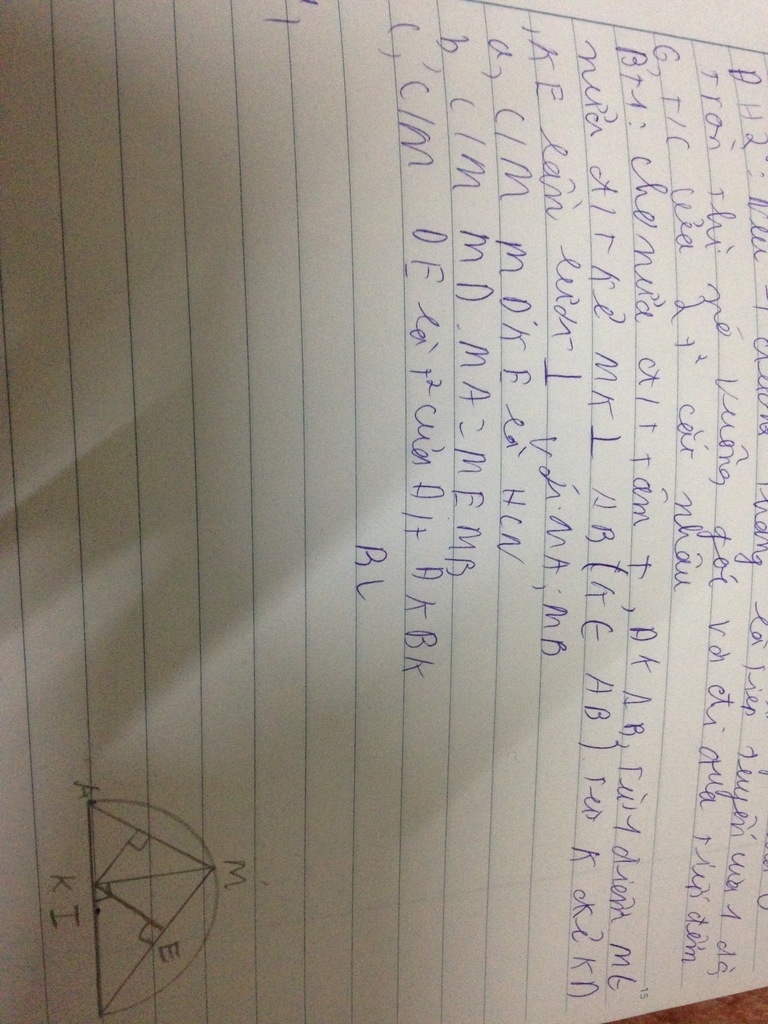 tròn thì nó vuông góc với đi qua tiếp điểm
6, t/c của 2 t² cắt nhau
Bt1: cho nửa đ/tr tâm I, ĐK AB, từ 1 điểm M t
nửa đ/tr kẻ MK ⊥ AB (K ∈ AB) từ K kẻ KD
KE lần lượt ⊥ với MA; MB
a, C/M MDKE là HCN
b, C/M MD.MA = ME.MB
c, C/M DE là t² của đ/tr ĐK BK
BL
M
E
A
K I
15